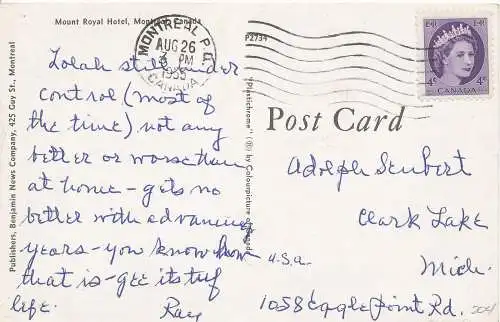 Mount Royal Hotel, Montreal, Canada
Lolah still under
control (most of
the time) not any
better or worse than
at home - gets no
better with advancing
years - you know how
that is - gee its tuf
life.
Ray
Publisher: Benjamin News Company, 425 Guy St., Montreal
"Plastichrome" (R) by Colourpicture
P2734
MONTREAL P.Q.
AUG 26
PM
1955
CANADA
4¢ 4¢
CANADA
Post Card
Adolph Seubert
Clark Lake
Mich.
U.S.A.
1058 Eagle Point Rd.